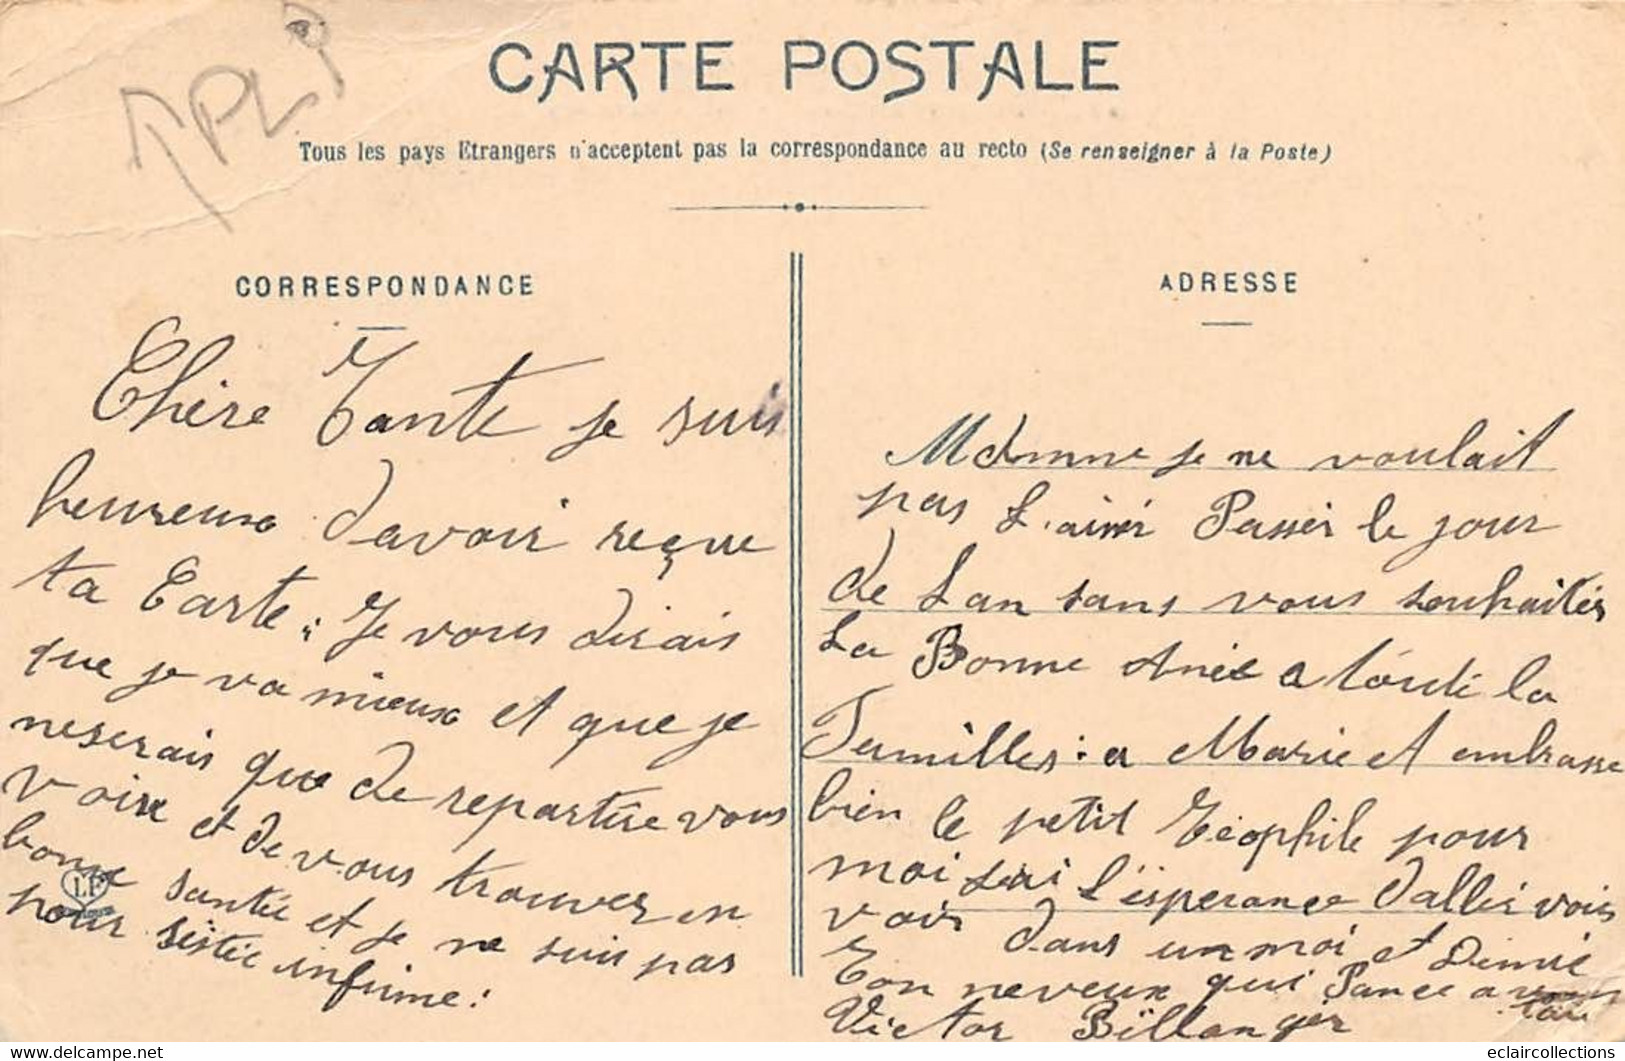 CARTE POSTALE
Tous les pays Etrangers n'acceptent pas la correspondance au recto (Se renseigner à la Poste)
CORRESPONDANCE
Chère Tante je suis
heureuse davoir reçue
ta Carte. Je vous dirais
que je va mieux et que je
neserais que de repartire vous
voire et de vous trouver en
bonne santée et je ne suis pas
pour infirme.
ADRESSE
je ne voulait
pas Passer le jour
de Lan sans vous souhaiter
La Bonne Anée a toute la
Familles: a Marie et embrasse
bien le petit Téophile pour
moi l'esperance d'aller vous
voir dans un moi et Demie
Ton neveux qui Pance a toie
Victor Billanger
L.F
eclaircollections
www.delcampe.net